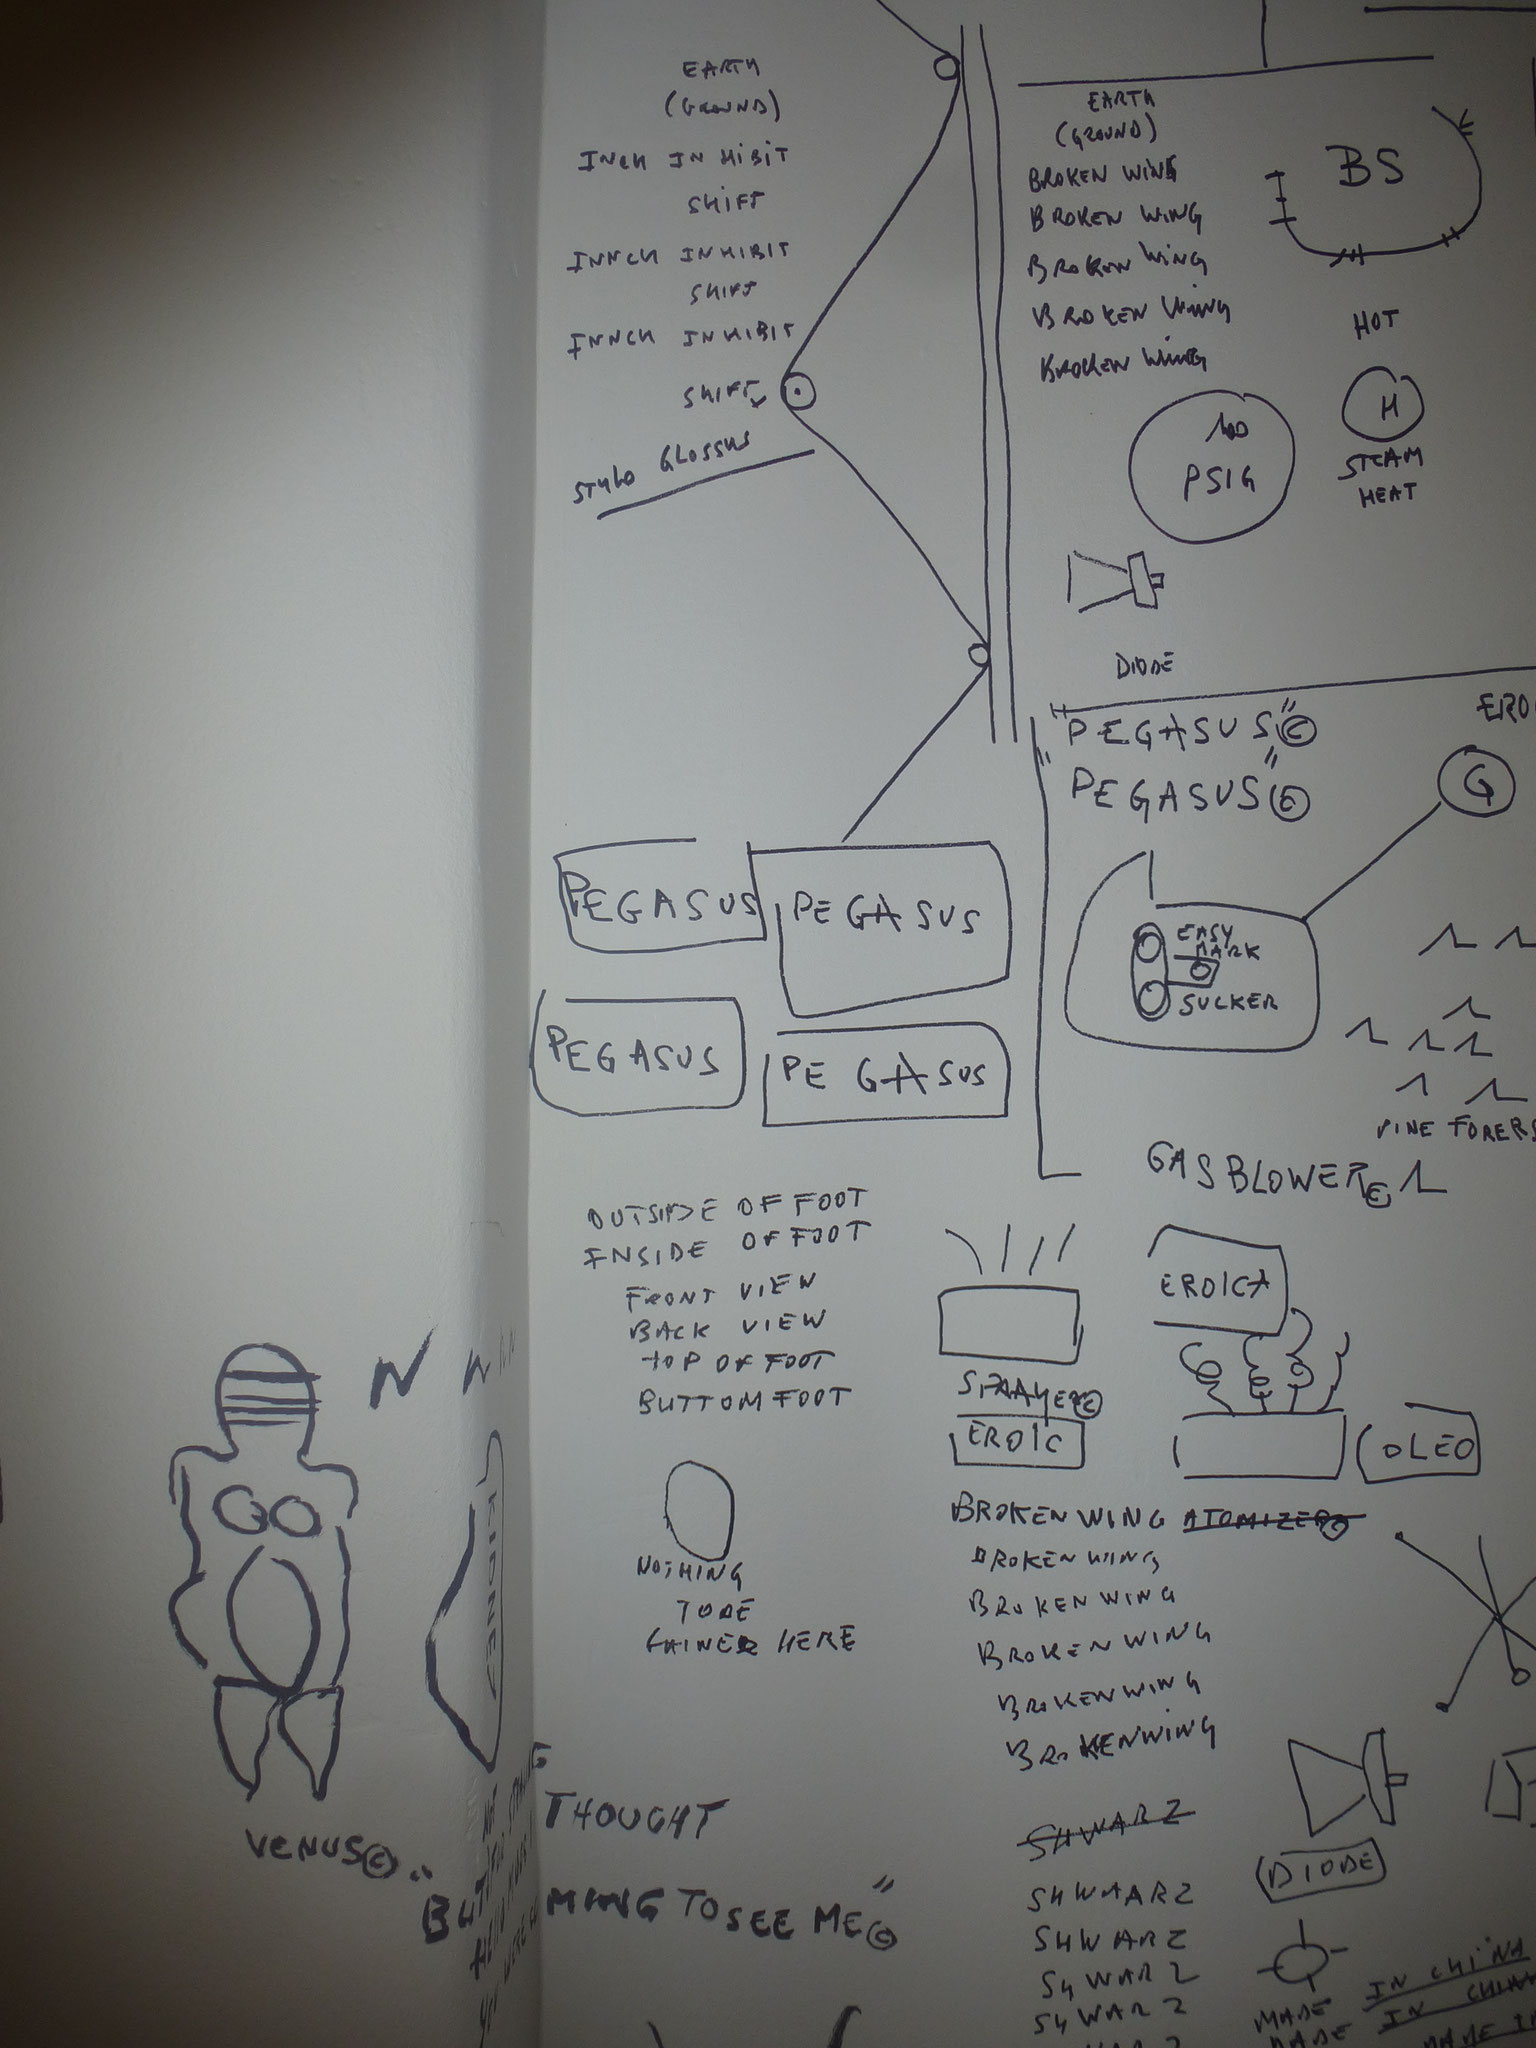 EARTH
(GROUND)
INCH INHIBIT
SHIFT
INNCH INHIBIT
SHIFT
INNCH INHIBIT
SHIFT
STYLO GLOSSUS
EARTH
(GROUND)
BROKEN WING
BROKEN WING
BROKEN WING
BROKEN WING
BROKEN WING
BS
HOT
H
STEAM
HEAT
PSIG
DIODE
"PEGASUS"©
"PEGASUS"©
G
EASY
MARK
SUCKER
PEGASUS
PEGASUS
PEGASUS
PEGASUS
GASBLOWER©
OUTSIDE OF FOOT
INSIDE OF FOOT
FRONT VIEW
BACK VIEW
TOP OF FOOT
BUTTOM FOOT
SPRAYER©
EROIC
EROICA
OLEO
NOTHING
TO BE
GAINED HERE
BROKEN WING ATOMIZER©
BROKEN WING
BROKEN WING
BROKEN WING
BROKEN WING
BROKEN WING
SHWARZ
SHWAARZ
SHWARZ
SHWARZ
SHWARZ
DIODE
MADE IN CHINA
MADE IN CHINA
N
KIDNEY
VENUS©
THOUGHT
TO SEE ME"©